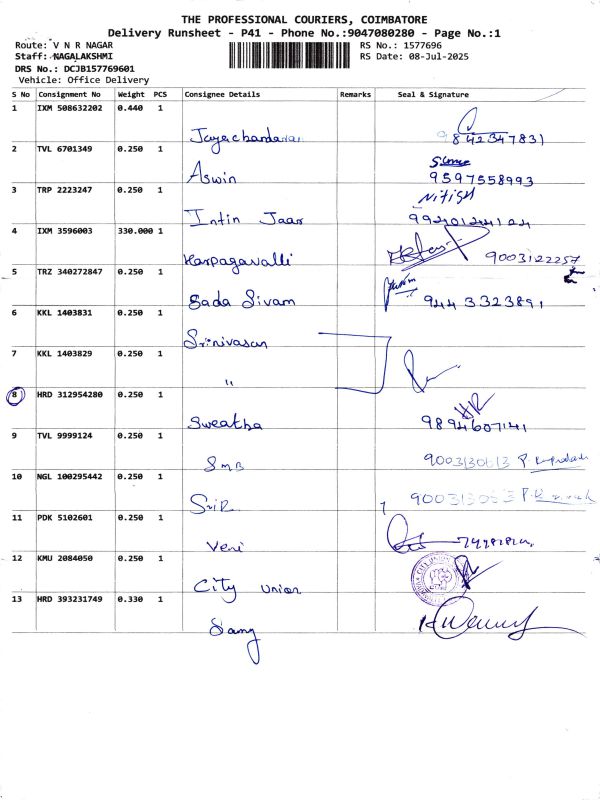 THE PROFESSIONAL COURIERS, COIMBATORE
Delivery Runsheet - P41 - Phone No.:9047080280 - Page No.:1
Route: V N R NAGAR RS No.: 1577696
Staff: NAGALAKSHMI RS Date: 08-Jul-2025
DRS No.: DCJB157769601
Vehicle: Office Delivery
S No Consignment No Weight PCS Consignee Details Remarks Seal & Signature
1 IXM 508632202 0.440 1
Jayachandaran 9842347831
2 TVL 6701349 0.250 1
Aswin 9597558993
3 TRP 2223247 0.250 1 Nitish
Intin Jaar 9940124124
4 IXM 3596003 330.000 1
Karpagavalli 9003122257
5 TRZ 340272847 0.250 1
Sada Sivam 9443323891
6 KKL 1403831 0.250 1
Srinivasan
7 KKL 1403829 0.250 1
"
8 HRD 312954280 0.250 1
Sweatha 9894607141
9 TVL 9999124 0.250 1
SMB 9003130613
10 NGL 100295442 0.250 1
SriR 9003130613
11 PDK 5102601 0.250 1
Veni
12 KMU 2084050 0.250 1
City Union
13 HRD 393231749 0.330 1
Samy